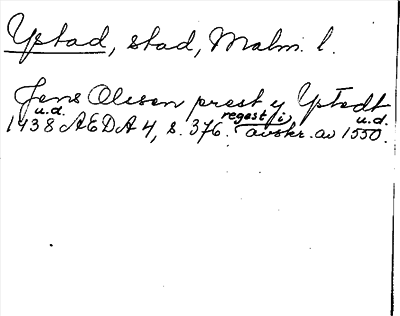 Ystad, stad, Malm. l.
Jens Olsson prest y Ystedt
u.d. regest (i) u.d.
1438 AEDA 4, s. 376. avskr. av 1550.